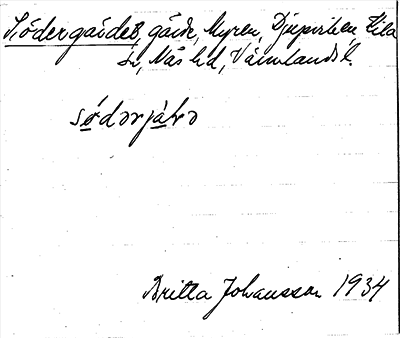 Södergärdet, gärde, Myren, Djupviken, Kila
sn, Näs hd, Värmlands l.
södərjälə
Britta Johansson 1934